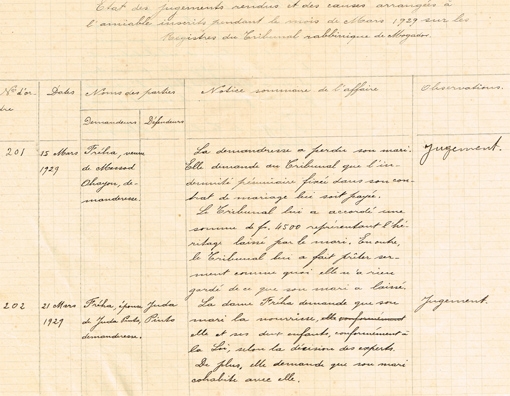 Etat des jugements rendus et des causes arrangées à
l'amiable inscrits pendant le mois de Mars 1929 sur les
Registres du Tribunal rabbinique de Mogador.
N° d'or-
dre
Dates
Noms des parties
Demandeurs
Défendeurs
Notice sommaire de l'affaire
Observations.
201
15 Mars
1929
Fréha, veuve
de Messod
Ohayon, de-
manderesse.
La demandresse a perdu son mari.
Elle demande au Tribunal que l'in-
demnité pécuniaire fixée dans son con-
trat de mariage lui soit payée.
Le Tribunal lui a accordé une
somme de fr. 4500 représentant l'hé-
ritage laissé par le mari. En outre,
le Tribunal lui a fait prêter ser-
ment comme quoi elle n'a rien
gardé de ce que son mari a laissé.
Jugement.
202
21 Mars
1929
Fréha, épouse
de Juda Pinto,
demanderesse.
Juda
Pinto
La dame Fréha demande que son
mari la nourrisse, elle conformément
elle et ses deux enfants, conformément à
la Loi, selon la décision des experts.
De plus, elle demande que son mari
cohabite avec elle.
Jugement.